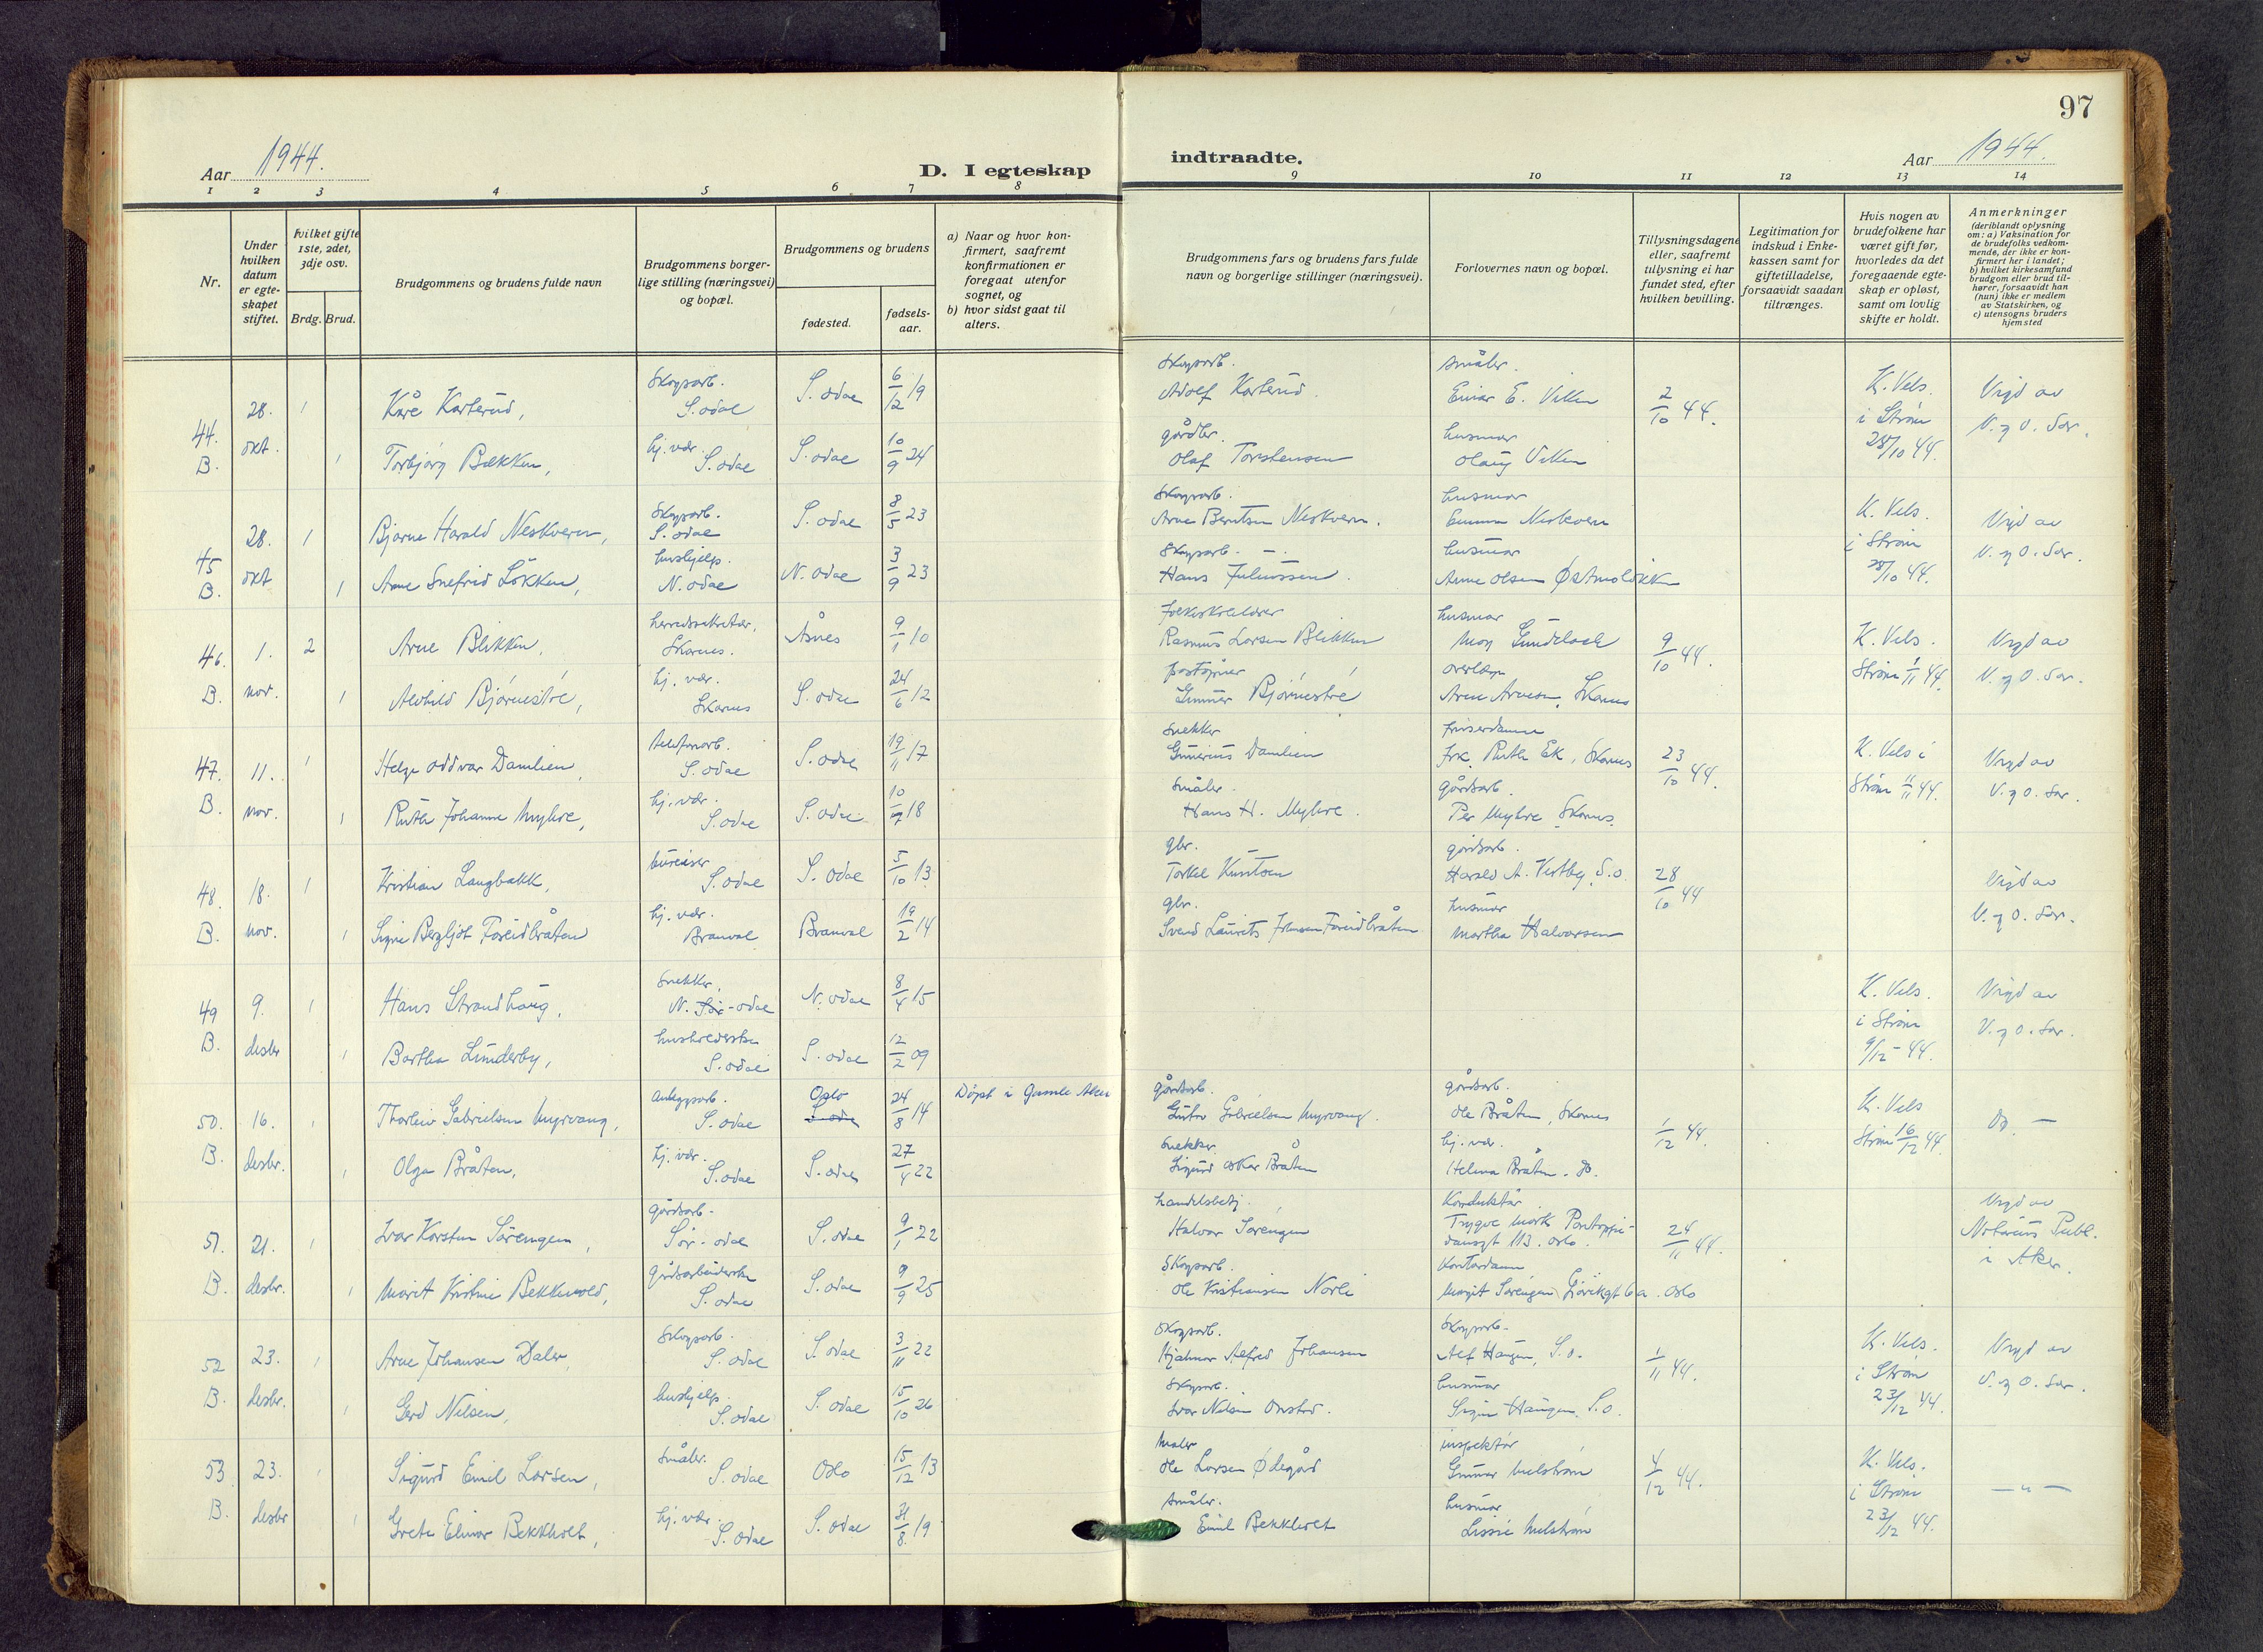 97
Aar 1944.
D. I egteskap
indtraadte.
Aar 1944.
1 2 3 4 5 6 7 8 9 10 11 12 13 14
Nr.
Under hvilken datum er egteskapet stiftet.
hvilket gifte 1ste, 2det, 3dje osv.
Brdg. Brud.
Brudgommens og brudens fulde navn
Brudgommens borgerlige stilling (næringsvei) og bopæl.
Brudgommens og brudens
fødested.
fødselsaar.
a) Naar og hvor konfirmert, saafremt konfirmationen er foregaat utenfor sognet, og
b) hvor sidst gaat til alters.
Brudgommens fars og brudens fars fulde navn og borgerlige stillinger (næringsvei).
Forlovernes navn og bopæl.
Tillysningsdagene eller, saafremt tillysning ei har fundet sted, efter hvilken bevilling.
Legitimation for indskud i Enkekassen samt for giftetilladelse, forsaavidt saadan tiltrænges.
Hvis nogen av brudefolkene har været gift før, hvorledes da det foregaaende egteskap er opløst, samt om lovlig skifte er holdt.
Anmerkninger
(deriblandt oplysning om: a) Vaksination for de brudefolks vedkommende, der ikke er konfirmert her i landet;
b) hvilket kirkesamfund brudgom eller brud tilhører, forsaavidt han (hun) ikke er medlem av Statskirken, og
c) utensogns bruders hjemsted
44. 28. 1 Kåre Karterud, Skogsarb. S. odal S. odal 6/12 19 Skogsarb. Adolf Karterud. småbr. Einar E. Viken 2/10 44. K. Vels. i Strøm 28/10 44. Vigd av V. og O. Sor.
B. okt. 1 Torbjørg Bekken, hj. vær. S. odal S. odal 10/9 24 gårdbr. Olaf Torstensen husmor Olaug Viken
45 28. 1 Bjarne Harald Neskvern, Skogsarb. S. odal S. odal 8/5 23 Skogsarb. Arne Berntsen Neskvern. husmor Emma Neskvern K. Vels. i Strøm 28/10 44. Vigd av V. og O. Sor.
B. okt 1 Anne Snefrid Løkken, hushjelp. N. odal N. odal 3/9 23 Skogsarb. Hans Juliussen. husmor Anne Olsen Østmoløkken
46. 1. 2 Arne Blikken, herredssekretær, Skarnes. Åsnes 9/1 10 Rasmus Larsen Blikken husmor May Sundelach 9/10 44. K. Vels. Strøm 1/11 44. Vigd av V. og O. Sor.
B. nov. 1 Alvhild Bjørnestre, hj. vær. Skarnes S. odal 24/6 12 Gunnar Bjørnestre overlærer Arne Arnesen, Skarnes
47. 11. 1 Helge Oddvar Damlien, telefonarb. S. odal S. odal 19/11 17 Snekker Gunerius Damlien friserdame frk. Ruth Ek, Skarnes 23/10 44. K. Vels i Strøm 11/11 44. Vigd av V. og O. Sor.
B. nov. 1 Ruth Johanne Myhre, hj. vær. S. odal S. odal 10/7 18 småbr. Hans H. Myhre. gårdsarb. Per Myhre Skarnes.
48. 18. 1 Kristian Langbakk, bureiser S. odal S. odal 5/10 13. gbr. Torkel Knutsen gårdsarb. Harald A. Vestby S. o. 28/10 44 Vigd av V. og O. Sor.
B. nov. 1 Signe Bergljot Foreidbråten hj. vær. Branval Branval 19/2 14 gbr. Svend Laurits Johnsen Foreidbråten husmor Martha Halvorsen
49 9. 1 Hans Strandhaug, Snekker, N. Sør-odal N. odal 8/4 15 K. Vels. i Strøm 9/12 - 44. Vigd av V. og O. Sor.
B. desbr 1 Bertha Lunderby, husbrederske S. odal S. odal 12/2 09
50. 16. 1 Thorleiv Gabrielsen Myrvang, anleggsarb. S. odal Oslo S. odal 24/8 14 Døpt i Gamle Aker gårdsarb. Gustav Gabrielsen Myrvang. gårdsarb. Ole Bråten, Skarnes 1/12 44. K. Vels Strøm 16/12 44. Do. —
B. desbr. 1 Olga Bråten, hj. vær. S. odal S. odal 27/4 22 Snekker Sigurd Oskar Bråten hj. vær. Helena Bråten. do.
51. 21. 1 Ivar Karsten Sørengen, gårdsarb. Sør-odal S. odal 9/1 22 handelsbetj. Halvor Sørengen Konduktør Trygve Mørk Pontoppidansgt 113. Oslo. 24/11 44. Vigd av Notarius Publ. i Aker.
B. desbr. 1 Marit Kristine Bekkevold, gårdsarbeiderske S. odal S. odal 9/9 25 Skogsarb. Ole Kristiansen Norli Kontordame Margit Sørengen Gjøvikgt 6a. Oslo
52 23. 1 Arne Johansen Daler, Skogsarb. S. odal S. odal 3/11 22 Skogsarb. Hjalmar Alfred Johansen Skogsarb. Alf Haugen, S. o. 1/11 44. K. Vels. i Strøm 23/12 44. Vigd av V. og O. Sor.
B. desbr. 1 Gerd Nilsen, hushjelp. S. odal S. odal 15/10 26 Skogsarb. Ivar Nilsen Onstad. husmor Signe Haugen. S. o.
53 23. 1 Sigurd Emil Larsen, småbr. S. odal Oslo 15/12 13 Maler Ole Larsen Ødegård inspektør Gunnar Melstrøm 4/12 44. K. Vels. i Strøm 23/12 44. — " —
B. desbr 1 Grete Elinor Bekkholt, hj. vær. S. odal S. odal 31/8 19 småbr. Emil Bekkholt husmor Lissie Melstrøm